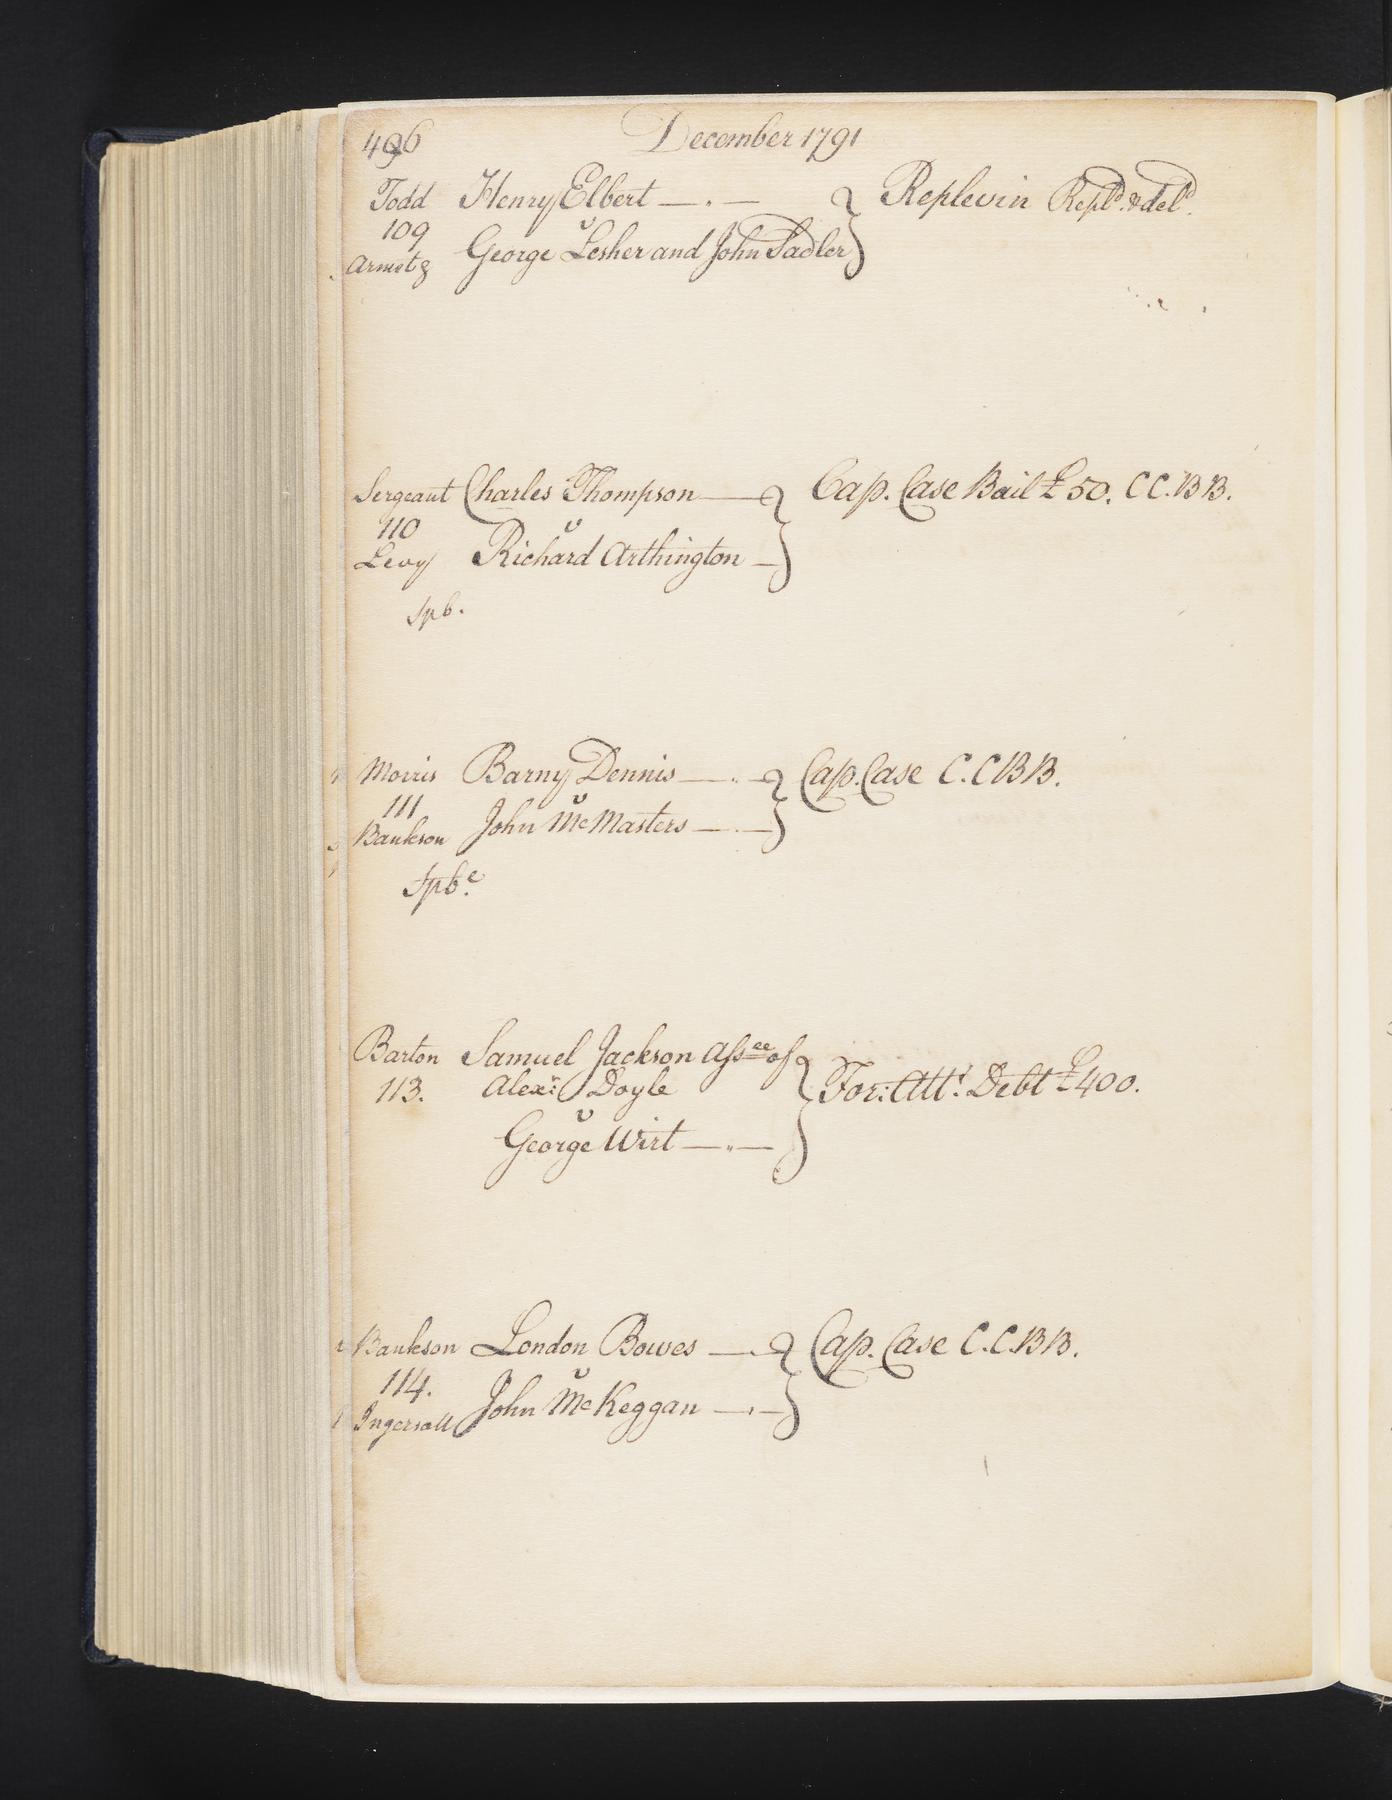 496 December 1791
Todd Henry Elbert — . — } Replevin Repl.d & del.d
109 v
Armstg George Lesher and John Sadler
Sergeant Charles Thompson — } Cap. Case Bail £50. CC. BB.
110 v
Levy Richard Arthington —
Spb.
Morris Barny Dennis — } Cap. Case C. C BB.
111 v
Bankson John McMasters —
Spb.e
Barton Samuel Jackson Assee of } For: Att.t Debt £400.
113. Alexr: Doyle
v
George Wirt —
Bankson London Bowes — } Cap. Case C. C. BB.
114. v
Ingersoll John McKeggan —